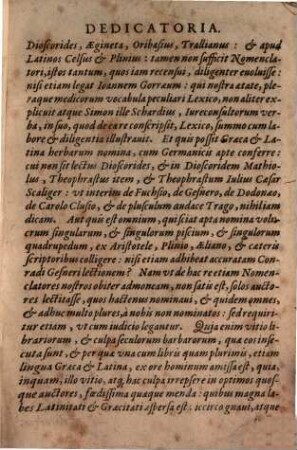 DEDICATORIA.
Dioscorides, Ægineta, Oribasius, Trallianus: & apud
Latinos Celsus & Plinius: tamen non sufficit Nomencla-
tori, istos tantum, quos iam recensui, diligenter euoluisse:
nisi etiam legat Ioannem Gorræum: qui nostra ætate, ple-
raque medicorum vocabula peculiari Lexico, non aliter ex-
plicuit atque Simon ille Schardius, Iureconsultorum ver-
ba, in suo, quod de ea re conscripsit, Lexico, summo cum la-
bore & diligentia illustrauit. Et quis possit Græca & La-
tina herbarum nomina, cum Germanicis apte conferre:
cui non sit lectus Dioscorides, & in Dioscoridem Mathio-
lus, Theophrastus item, & Theophrastum Iulius Cæsar
Scaliger: vt interim de Fuchsio, de Gesnero, de Dodonæo,
de Carolo Clusio, & de plusculum audace Trago, nihil iam
dicam. Aut quis est omnium, qui sciat apta nomina volu-
crum singularum, & singulorum piscium, & singulorum
quadrupedum, ex Aristotele, Plinio, Æliano, & cæteris
scriptoribus colligere: nisi etiam adhibeat accuratam Con-
radi Gesneri lectionem? Nam vt de hac re etiam Nomen-
clatores nostros obiter admoneam, non satis est, solos aucto-
res lectitasse, quos hactenus nominaui, & quidem omnes,
& adhuc multo plures, à nobis non nominatos: sed requiri-
tur etiam, vt cum iudicio legantur. Quia enim vitio li-
brariorum, & culpa seculorum barbarorum, quæ eos inse-
cuta sunt, & per quæ vna cum libris quam plurimis, etiam
lingua Græca & Latina, ex ore hominum amissa est, quia,
inquam, illo vitio, atq́; hac culpa irrepsere in optimos quos-
que auctores, fœdissima quæque menda: quibus magna la-
bes Latinitati & Græcitati aspersa est: iccirco gnaui, atque